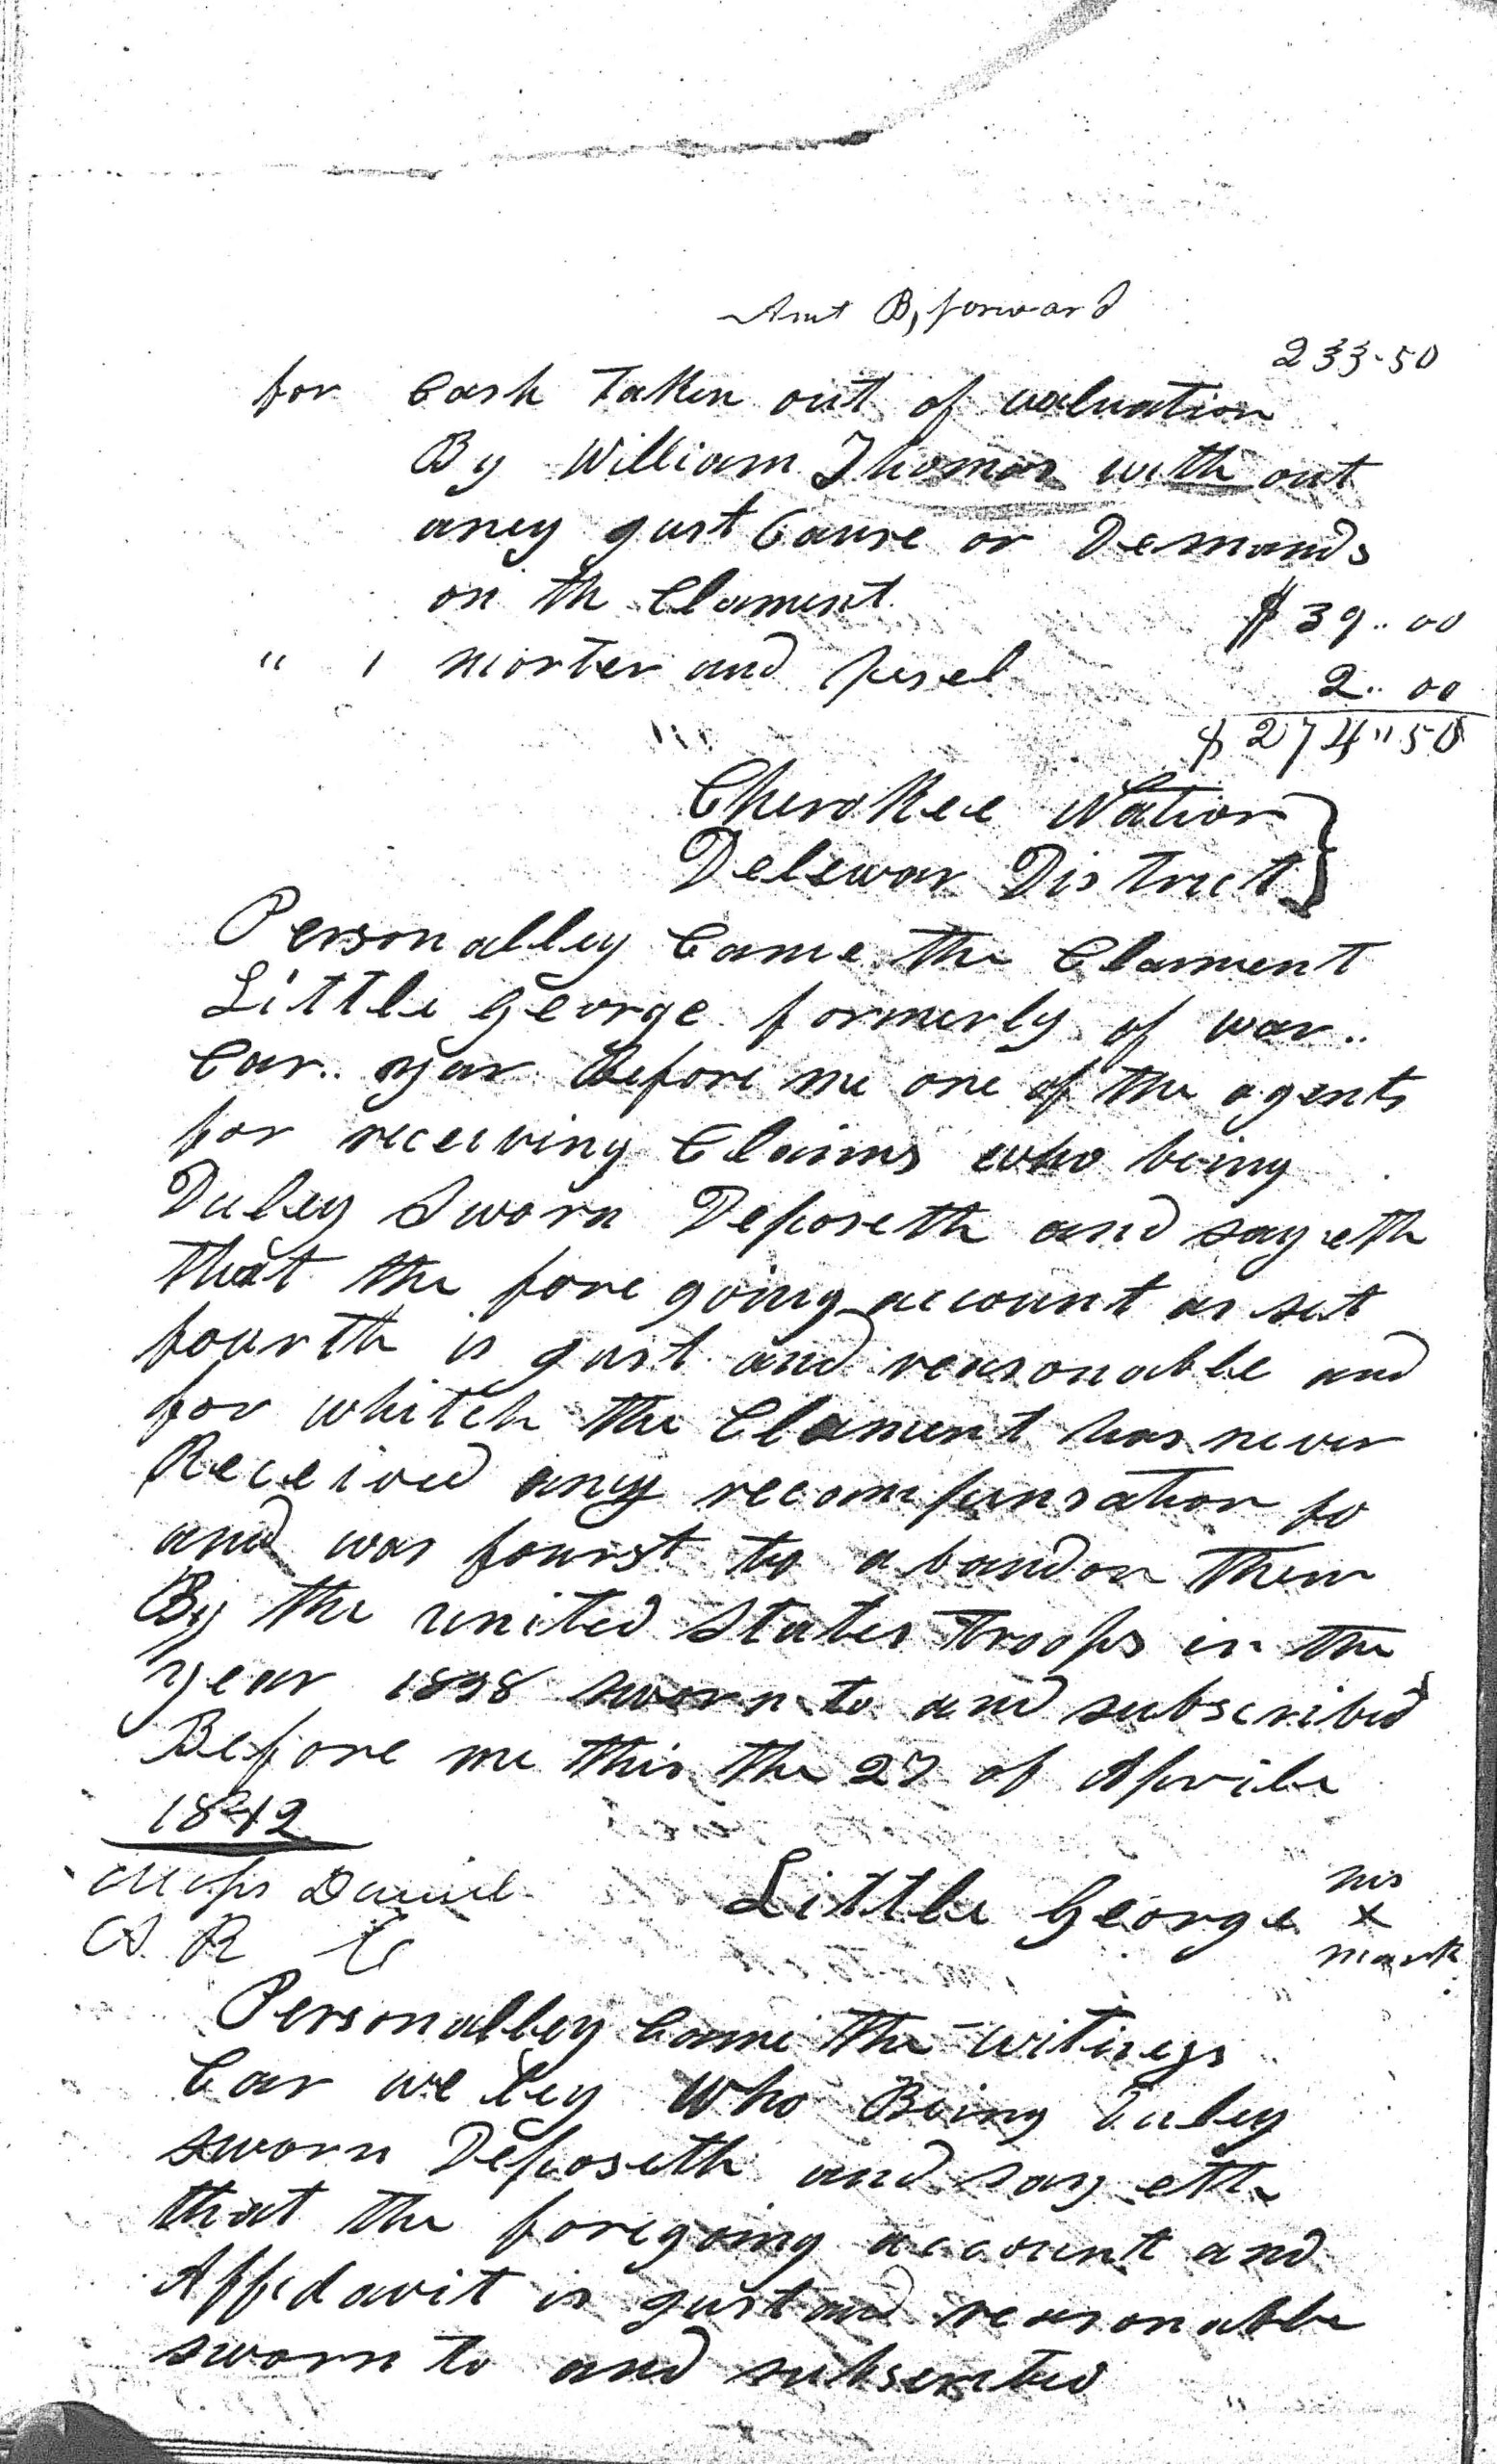 Amt B, forward
233-50
for Cash Taken out of valuation
By William Thomas with out
aney gust Cause or Demands
on th Clament. $39.. 00
" 1 morter and pesel 2.. 00
$274"50
Cherokee Nation
Delewar District
Personalley Came the Clament
Little George formerly of war..
Car.. yar Before me one of the agents
for receiving Claims who being
Duley Sworn Deposeth and say eth
that the fore going account as set
fourth is gust and reasonable and
for whitch the Clament has never
Received any recompensation fo
and was fourst to abandon Them
By the united States Troops in the
year 1838 sworn to and subscribed
Before me this the 27 of Aprile
1842
Moses Daniel
A. R C
Little George his
x
mark
Personalley Came the witness
Car we ley Who Being Duley
sworn Deposeth and say eth
that the foregoing account and
Affedavit is gust and reasonable
sworn to and subscribed